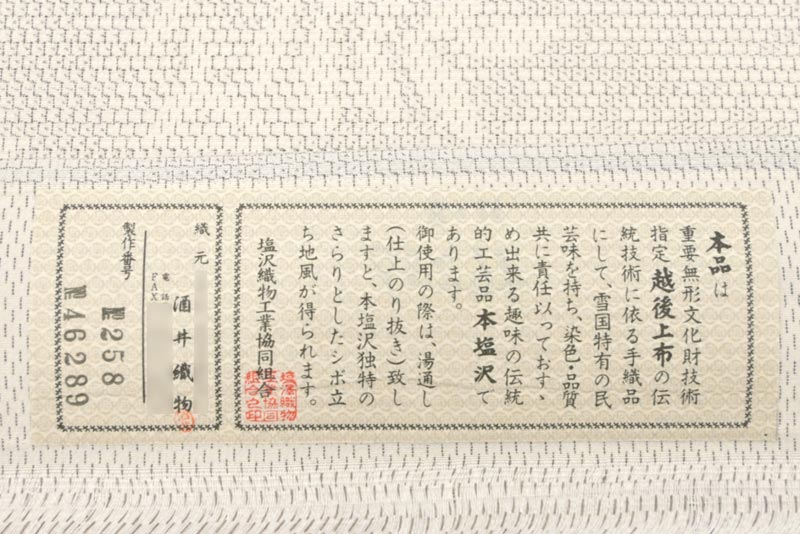 本品は
重要無形文化財技術
指定越後上布の伝
統技術に依る手織品
にして、雪国特有の民
芸味を持ち、染色・品質
共に責任以っておすゝ
め出来る趣味の伝統
的工芸品本塩沢て
あります。
御使用の際は、湯通し
(仕上のり抜き)致し
ますと、本塩沢独特の
さらりとしたシボ立
ち地風が得られます。
塩沢織物工業協同組合
織元
酒井織物
電話
FAX
製作番号
№258
№46289